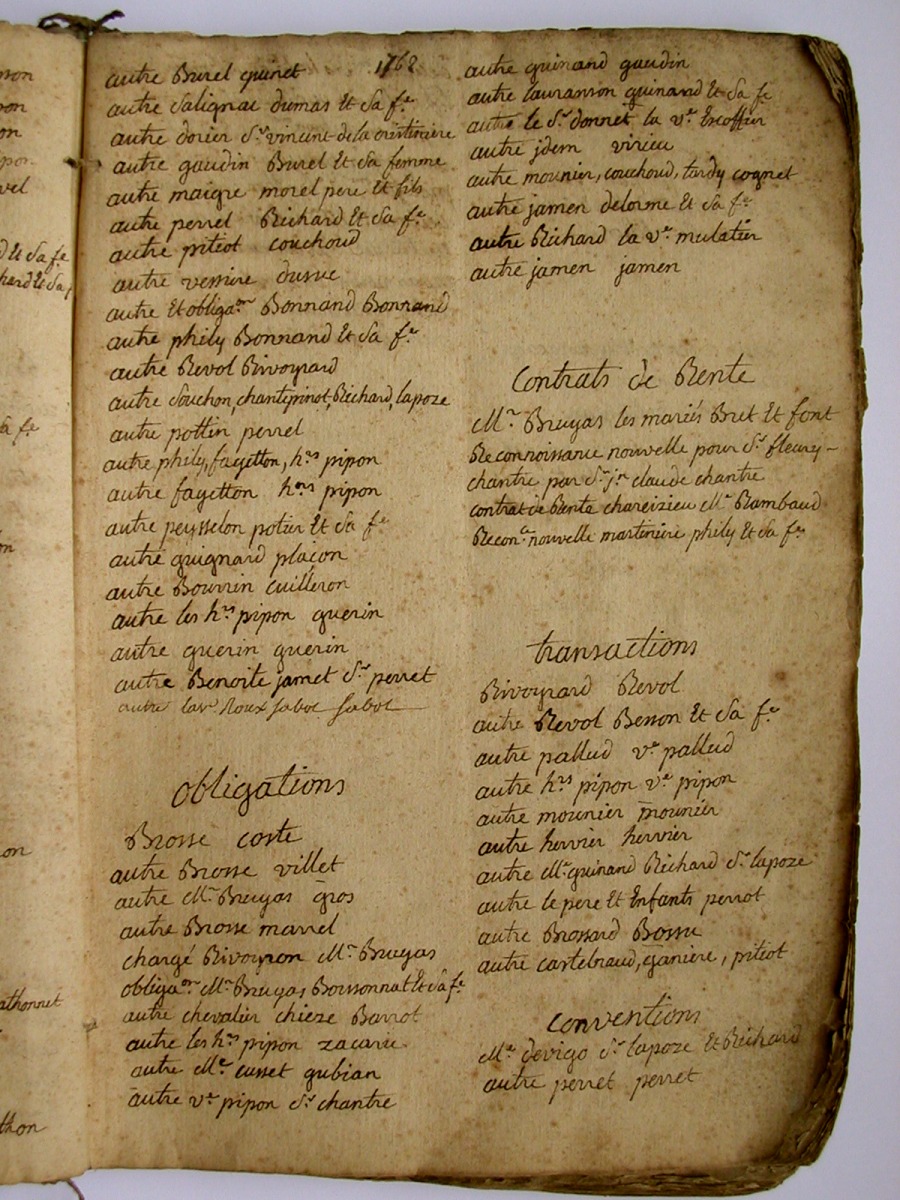 autre Burel guinet 1762
autre Salignac dumas Et Sa fe
autre dorier Sr vincent de la
autre gaudin Burel Et Sa femme
autre maigre morel pere Et fils
autre perrel Richard Et Sa fe
autre piteot couchoud
autre verrire
autre Et obligaon Bonnand Bonnand
autre phily Bonnand Et Sa fe
autre Revol Rivoyrard
autre Souchon, chantepinot, Richard, lapoze
autre pottin perrel
autre phily, fayetton, hrs pipon
autre fayetton hrs pipon
autre peysselon potier Et Sa fe
autre guignard plaçon
autre Bourrin cuilleron
autre les hrs pipon guerin
autre guerin guerin
autre Benoite jamet Sr perret
autre la ve Roux Sabot Sabot
obligations
Brosse coste
autre Brosse villet
autre Mr Bruyas gros
autre Brosse marrel
chargé Rivoyron Mr Bruyas
obligaon Mr Bruyas Boissonnat Et Sa fe
autre chevalier chieze Barrot
autre les hrs pipon zacarie
autre Me cusset gubian
autre ve pipon Sr chantre
autre guinand gaudin
autre lauranson guinand Et Sa fe
autre le Sr donnet la ve Escoffier
autre jdem virieu
autre mounier, couchoud, tardy cognet
autre jamen delorme Et Sa fe
autre Richard la ve mulatier
autre jamen jamen
Contrats de Rente
Mr Bruyas les mariés Bret Et font
Reconnoissance nouvelle pour Sr fleury
chantre par Sr jn claude chantre
contrat de Rente chareizieu Me Rambaud
Reconce nouvelle martiniere phily Et Sa fe
transactions
Rivoyrard Revol
autre Revol Besson Et Sa fe
autre palluid ve palluid
autre hrs pipon ve pipon
autre mounier mounier
autre hervier hervier
autre Me guinand Richard Sr lapoze
autre le pere Et Enfants perrot
autre Brossard Bossu
autre castelnaud, ganiere, piteot
conventions
Me devigo Sr lapoze Et Richard
autre perret perret